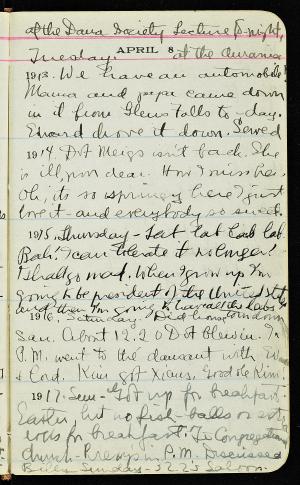 of the Dana Society Lecture to-night,
Tuesday. at the Aurania
APRIL 8
1913. We have an automobile!
Mama and papa came down
in it from Glens Falls to-day.
Edward drove it down. Served
1914. Dot Meigs isn't back. She
is ill, poor dear. How I miss her.
Oh, its so springy here I just
love it - and everybody so sweet.
1915. Thursday - Lat lab lab lab.
Bah! I can tolerate it no longer!
I shall go mad. When I grow up I'm
going to be president of the United States
and then I'm going to have all the labs
1916. Saturday. torn down
San. About 12.20 Dot blew in. In
P.M. went to the dansant with
& Cord. Kim got Good ole Kim.
1917. Sun - Got up for breakfast.
Easter, but no fish-balls or
eggs for breakfast. To Congregational
church - Prexy in P.M. Discussed
Billy Sunday -